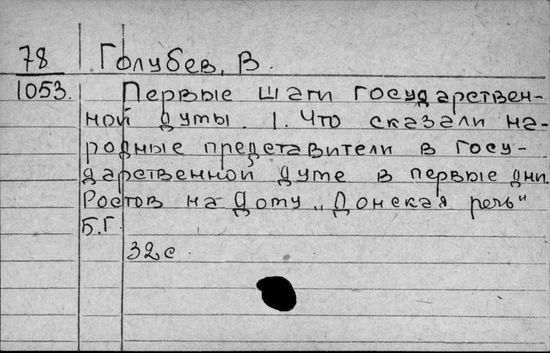 78 Голубев, В.
1053. Первые шаги государствен-
ной думы. 1. Что сказали на-
родные представители в госу-
дарственной думе в первые дни.
Ростов на Дону „Донская речь"
Б.Г.
32 с.